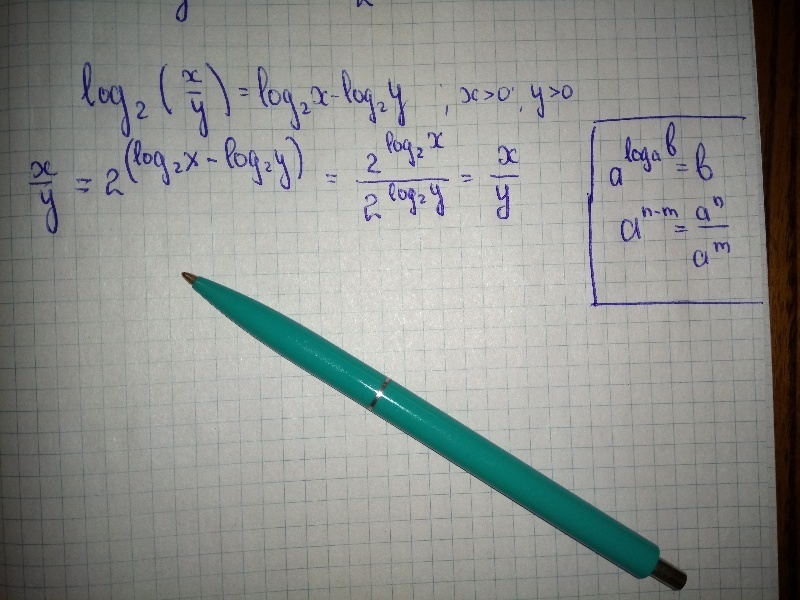 log₂(x/y) = log₂x - log₂y ; x>0; y>0
x/y = 2^(log₂x - log₂y) = 2^(log₂x)/2^(log₂y) = x/y
a^(logₐb) = b
a^(n-m) = aⁿ/a^m